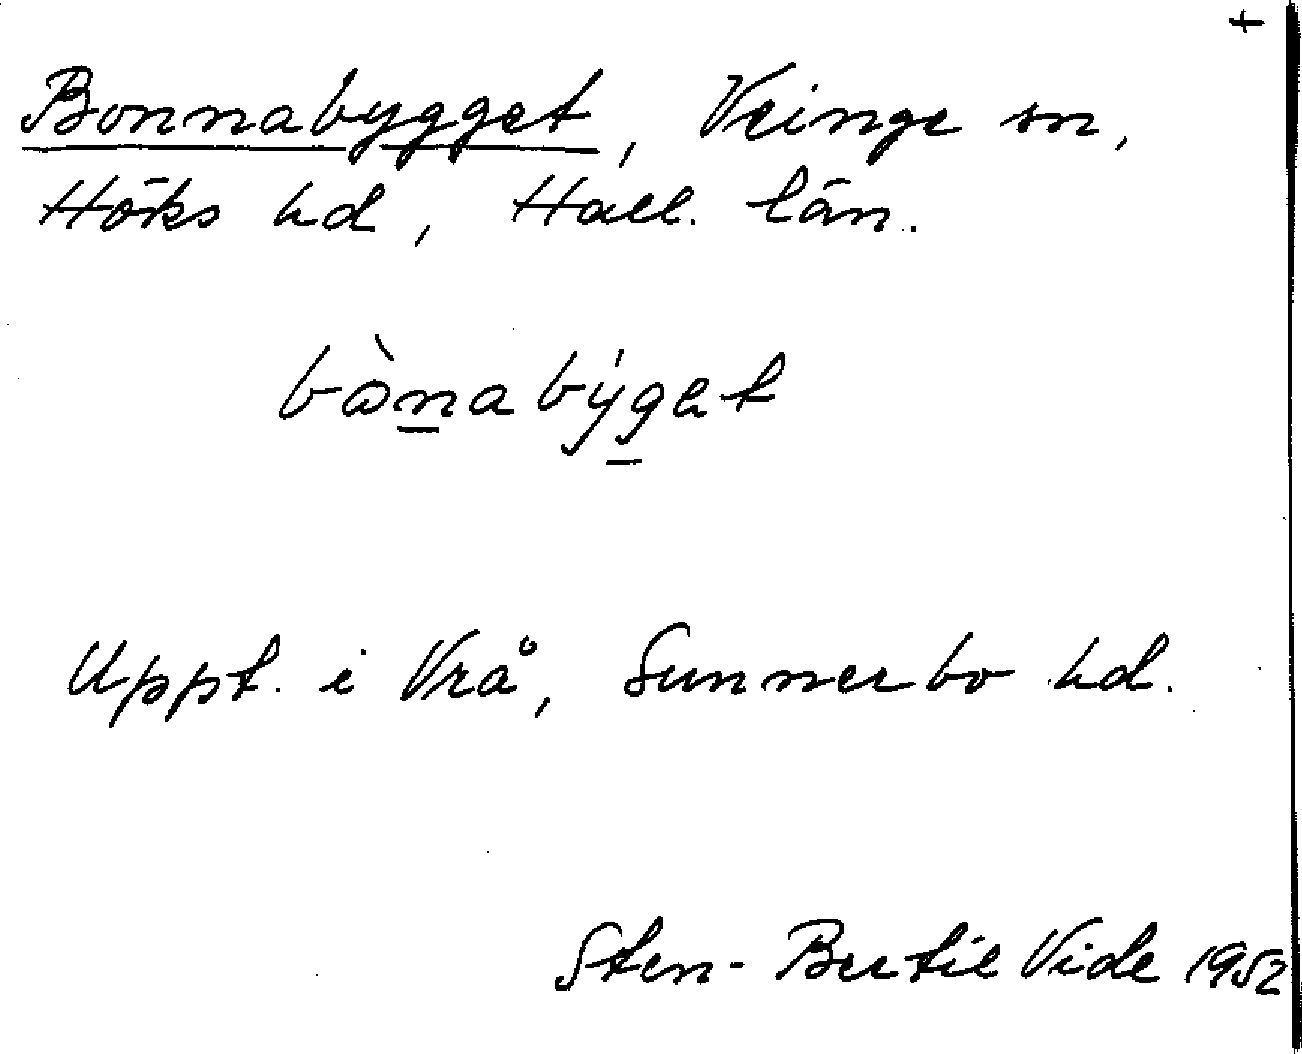 +
Bonnabygget, Veinge sn,
Höks hd, Hall. län.
bònabýget
Uppt. i Vrå, Sunnerbo hd.
Sten-Bertil Vide 1952